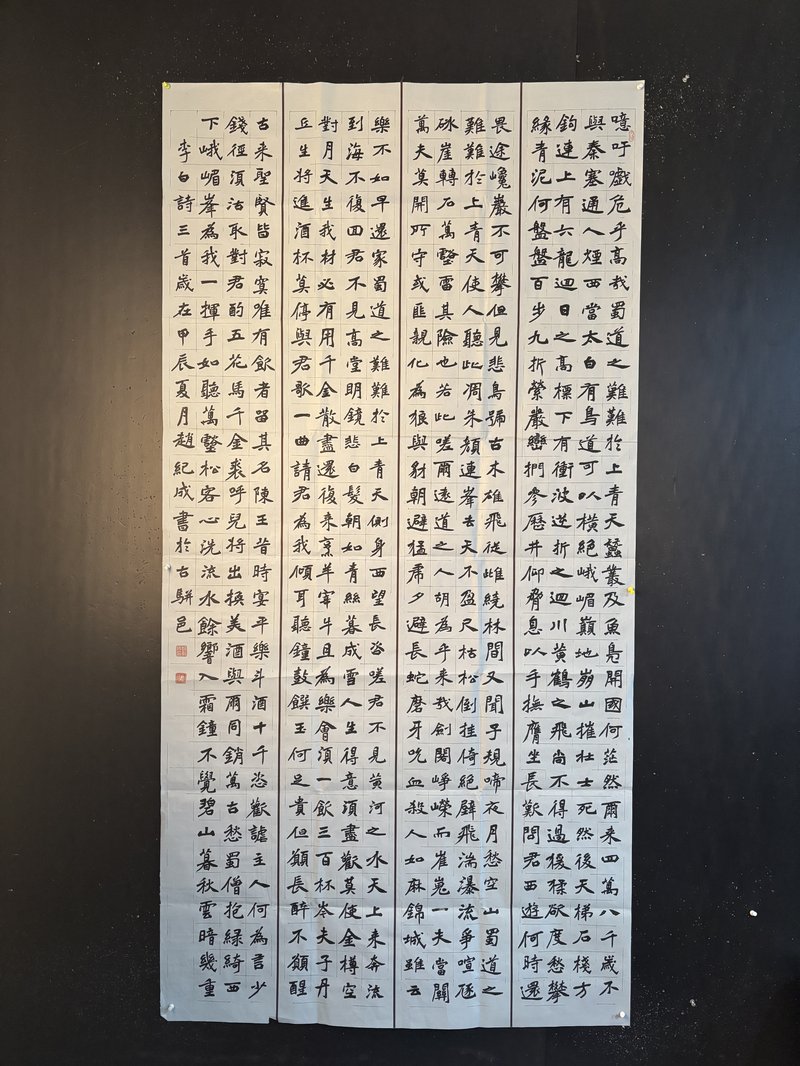 噫吁戲危乎高哉蜀道之難難於上青天蠶叢及魚鳧開國何茫然爾来四萬八千歲不
與秦塞通人煙西當太白有鳥道可以橫絕峨嵋巔地崩山摧壯士死然後天梯石棧方
鉤連上有六龍迴日之高標下有衝波逆折之迴川黃鶴之飛尚不得過猨猱欲度愁攀
緣青泥何盤盤百步九折縈巖巒捫參歷井仰脅息以手撫膺坐長歎問君西遊何時還
畏途巉巖不可攀但見悲鳥號古木雄飛從雌繞林間又聞子規啼夜月愁空山蜀道之
難難於上青天使人聽此凋朱顏連峯去天不盈尺枯松倒挂倚絕壁飛湍瀑流爭喧豗
砯崖轉石萬壑雷其險也若此嗟爾遠道之人胡為乎来哉劍閣崢嶸而崔嵬一夫當關
萬夫莫開所守或匪親化為狼與豺朝避猛虎夕避長蛇磨牙吮血殺人如麻錦城雖云
樂不如早還家蜀道之難難於上青天側身西望長咨嗟君不見黃河之水天上来奔流
到海不復回君不見高堂明鏡悲白髮朝如青絲暮成雪人生得意須盡歡莫使金樽空
對月天生我材必有用千金散盡還復来烹羊宰牛且為樂會須一飲三百杯岑夫子丹
丘生將進酒杯莫停與君歌一曲請君為我傾耳聽鐘鼓饌玉何足貴但願長醉不願醒
古来聖賢皆寂寞唯有飲者留其名陳王昔時宴平樂斗酒十千恣歡謔主人何為言少
錢徑須沽取對君酌五花馬千金裘呼兒將出換美酒與爾同銷萬古愁蜀僧抱綠綺西
下峨嵋峯為我一揮手如聽萬壑松客心洗流水餘響入霜鐘不覺碧山暮秋雲暗幾重
李白詩三首歲在甲辰夏月趙紀成書於古駢邑